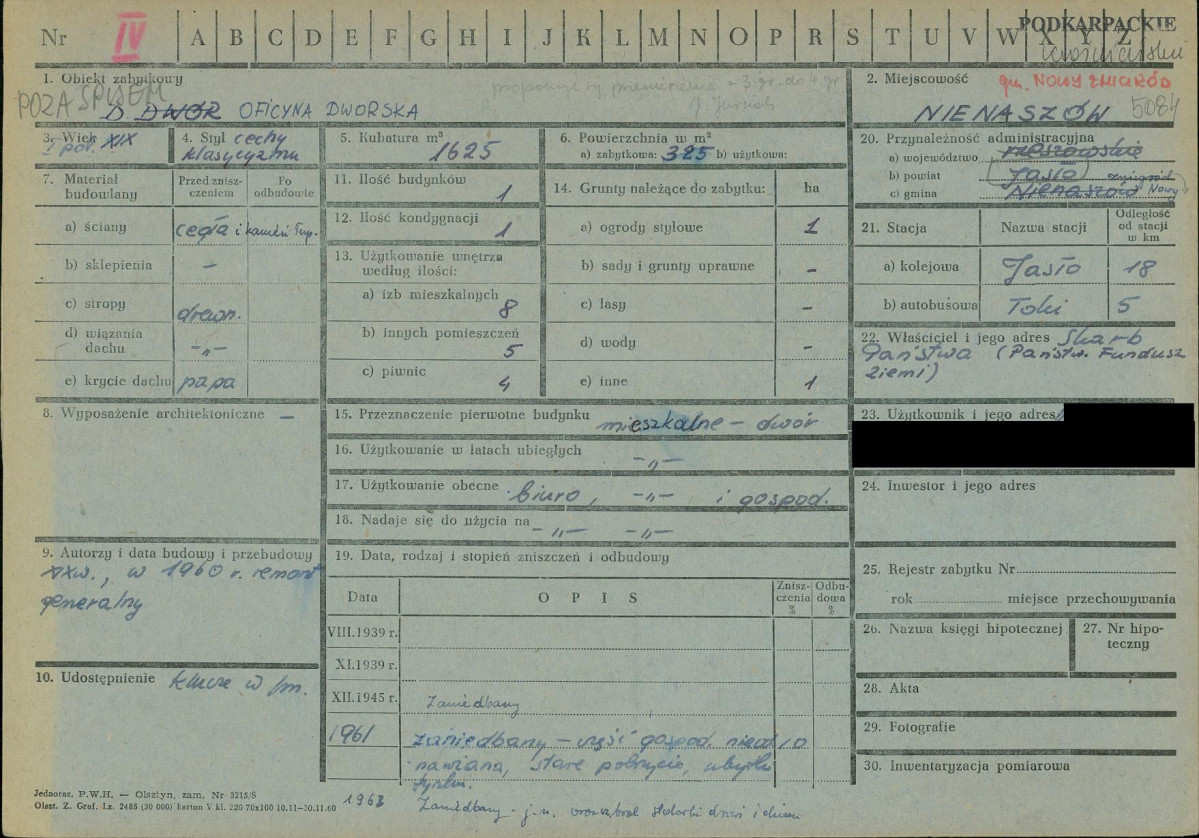 Nr IV A B C D E F G H I J K L M N O P R S T U V W X Y Z
PODKARPACKIE
1. Obiekt zabytkowy
POZA SPISEM
D. DWÓR OFICYNA DWORSKA
2. Miejscowość gm. NOWY ŻMIGRÓD
NIENASZÓW 5084
3. Wiek XIX
I poł.
4. Styl cechy
klasycyzmu
5. Kubatura m³
1625
6. Powierzchnia w m²
a) zabytkowa: 325 b) użytkowa:
7. Materiał budowlany
Przed zniszczeniem
Po odbudowie
a) ściany cegła i kamień
b) sklepienia –
c) stropy drewn.
d) wiązania dachu -„-
e) krycie dachu papa
8. Wyposażenie architektoniczne –
9. Autorzy i data budowy i przebudowy
XX w., w 1960 r. remont
generalny
10. Udostępnienie klucze w
11. Ilość budynków
1
12. Ilość kondygnacji
1
13. Użytkowanie wnętrza
według ilości:
a) izb mieszkalnych
8
b) innych pomieszczeń
5
c) piwnic
4
14. Grunty należące do zabytku: ha
a) ogrody stylowe 1
b) sady i grunty uprawne –
c) lasy –
d) wody –
e) inne 1
15. Przeznaczenie pierwotne budynku
mieszkalne – dwór
16. Użytkowanie w latach ubiegłych
-„-
17. Użytkowanie obecne biuro, -„- i gospod.
18. Nadaje się do użycia na -„- -„-
19. Data, rodzaj i stopień zniszczeń i odbudowy
Data
O P I S
Zniszczenia %
Odbudowa %
VIII.1939 r.
XI.1939 r.
XII.1945 r. Zaniedbany
1961 zaniedbany – część gospod. nieod 10
nawiana, stare pokrycie, ubytki
tynku.
1963 Zaniedbany - j.w.
20. Przynależność administracyjna
a) województwo rzeszowskie
b) powiat Jasło
c) gmina Nienaszów Żmigród Nowy
21. Stacja
Nazwa stacji
Odległość od stacji w km
a) kolejowa Jasło 18
b) autobusowa Toki 5
22. Właściciel i jego adres Skarb
Państwa (Państw. Fundusz
Ziemi)
23. Użytkownik i jego adres
24. Inwestor i jego adres
25. Rejestr zabytku Nr
rok miejsce przechowywania
26. Nazwa księgi hipotecznej
27. Nr hipoteczny
28. Akta
29. Fotografie
30. Inwentaryzacja pomiarowa
Jednoraz. P.W.H. — Olsztyn, zam. Nr 3215/S
Olszt. Z. Graf. Lz. 2485 (30 000) karton V kl. 220 70x100 10.11—30.11.60